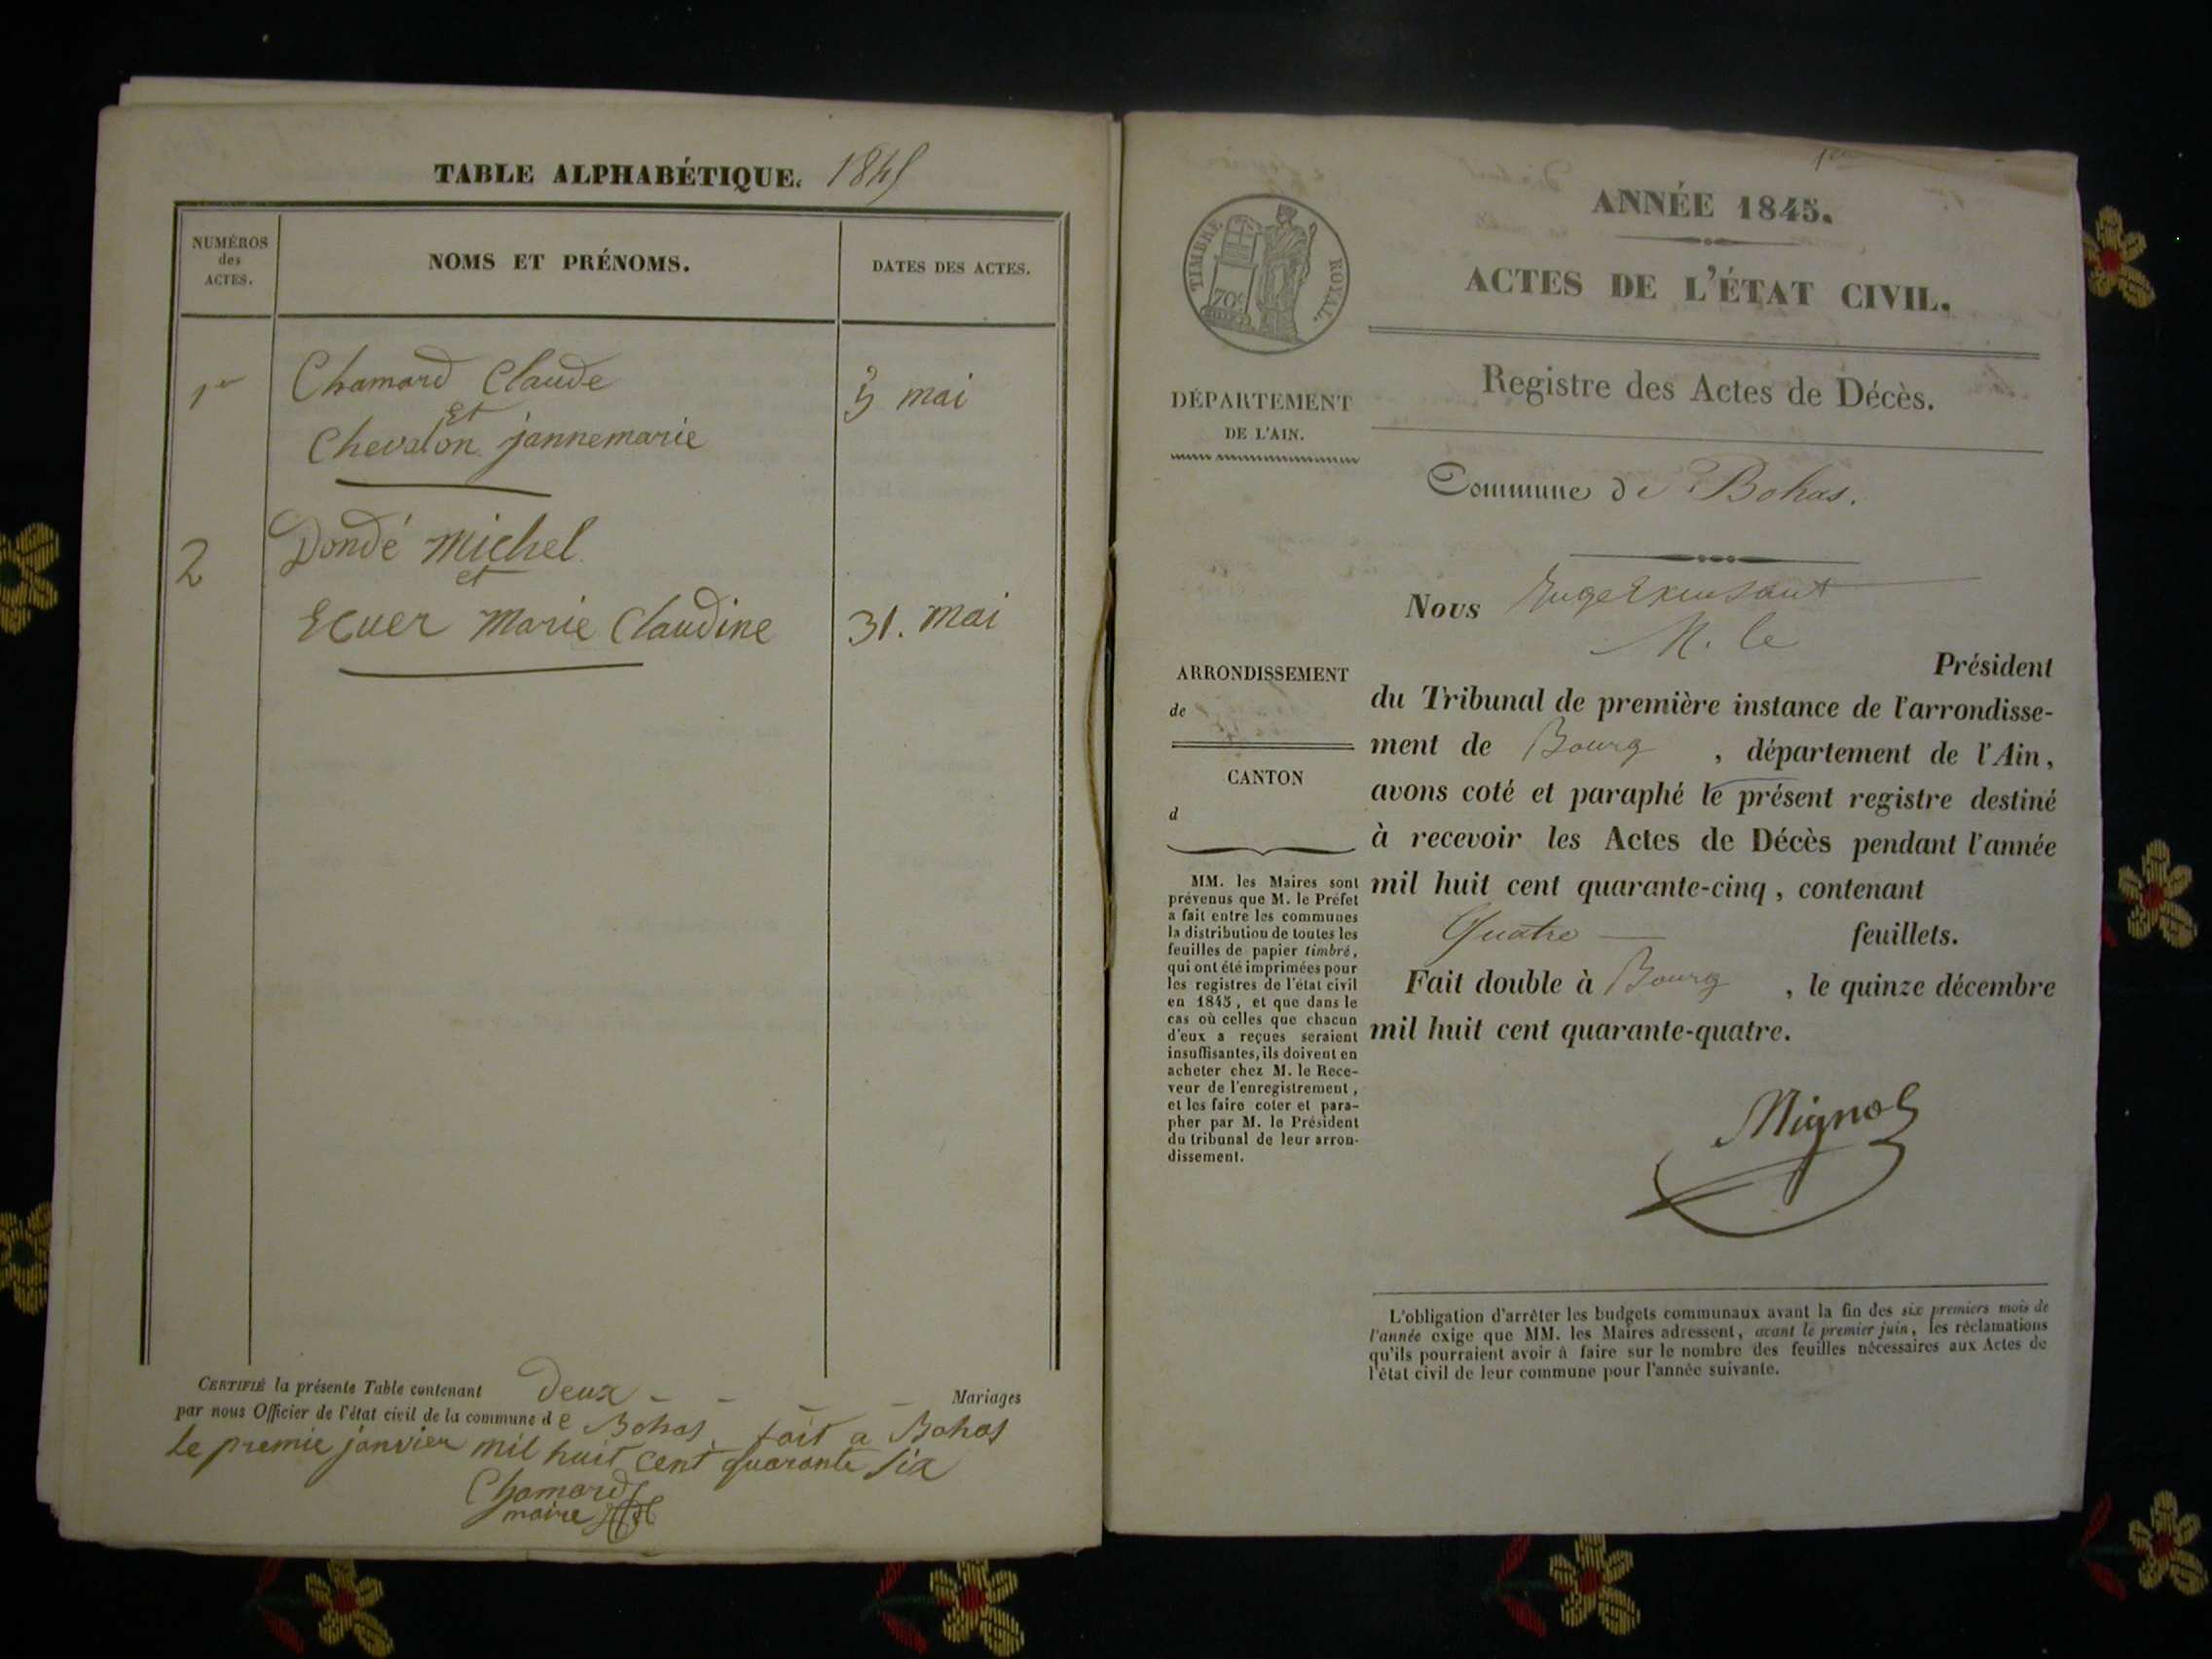 TABLE ALPHABÉTIQUE. 1845
NUMÉROS
des
ACTES.
NOMS ET PRÉNOMS.
DATES DES ACTES.
1er Chamard Claude 5 mai
Et
Chevalon jannemarie
2 Dondé Michel
et
Ecuer Marie Claudine 31. mai
CERTIFIÉ la présente Table contenant Deux - - - - Mariages
par nous Officier de l'état civil de la commune de Bohas, fait a Bohas
le premie janvier mil huit cent quarante six
Chamard
maire
1er
ANNÉE 1845.
ACTES DE L'ÉTAT CIVIL.
TIMBRE ROYAL.
70c
Registre des Actes de Décès.
DÉPARTEMENT
DE L'AIN.
Commune de Bohas.
Nous
M. le
Président
du Tribunal de première instance de l'arrondisse-
ment de Bourg , département de l'Ain,
avons coté et paraphé le présent registre destiné
à recevoir les Actes de Décès pendant l'année
mil huit cent quarante-cinq, contenant
Quatre feuillets.
Fait double à Bourg , le quinze décembre
mil huit cent quarante-quatre.
ARRONDISSEMENT
de
CANTON
d
MM. les Maires sont
prévenus que M. le Préfet
a fait entre les communes
la distribution de toutes les
feuilles de papier timbré,
qui ont été imprimées pour
les registres de l'état civil
en 1845, et que dans le
cas où celles que chacun
d'eux a reçues seraient
insuffisantes, ils doivent en
acheter chez M. le Rece-
veur de l'enregistrement,
et les faire coter et para-
pher par M. le Président
du tribunal de leur arron-
dissement.
L'obligation d'arrêter les budgets communaux avant la fin des six premiers mois de
l'année exige que MM. les Maires adressent, avant le premier juin, les réclamations
qu'ils pourraient avoir à faire sur le nombre des feuilles nécessaires aux Actes de
l'état civil de leur commune pour l'année suivante.